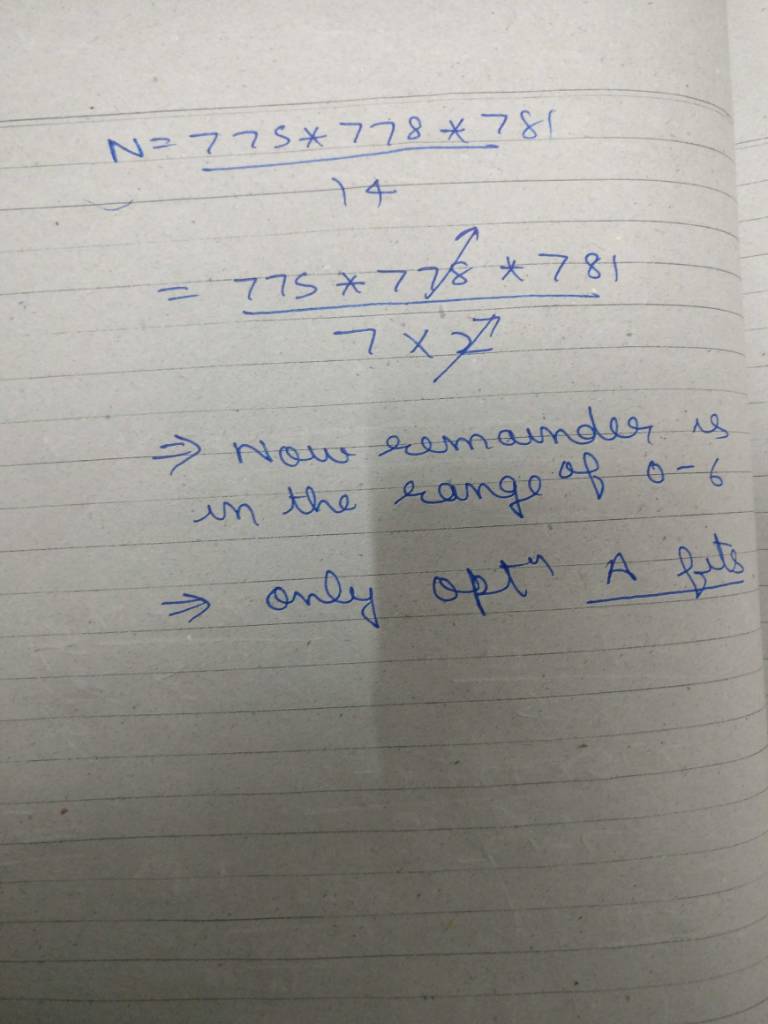 N= 775*778*781
14
= 775*778*781
7x2
⇒ Now remainder is
in the range of 0-6
⇒ only optⁿ A fits